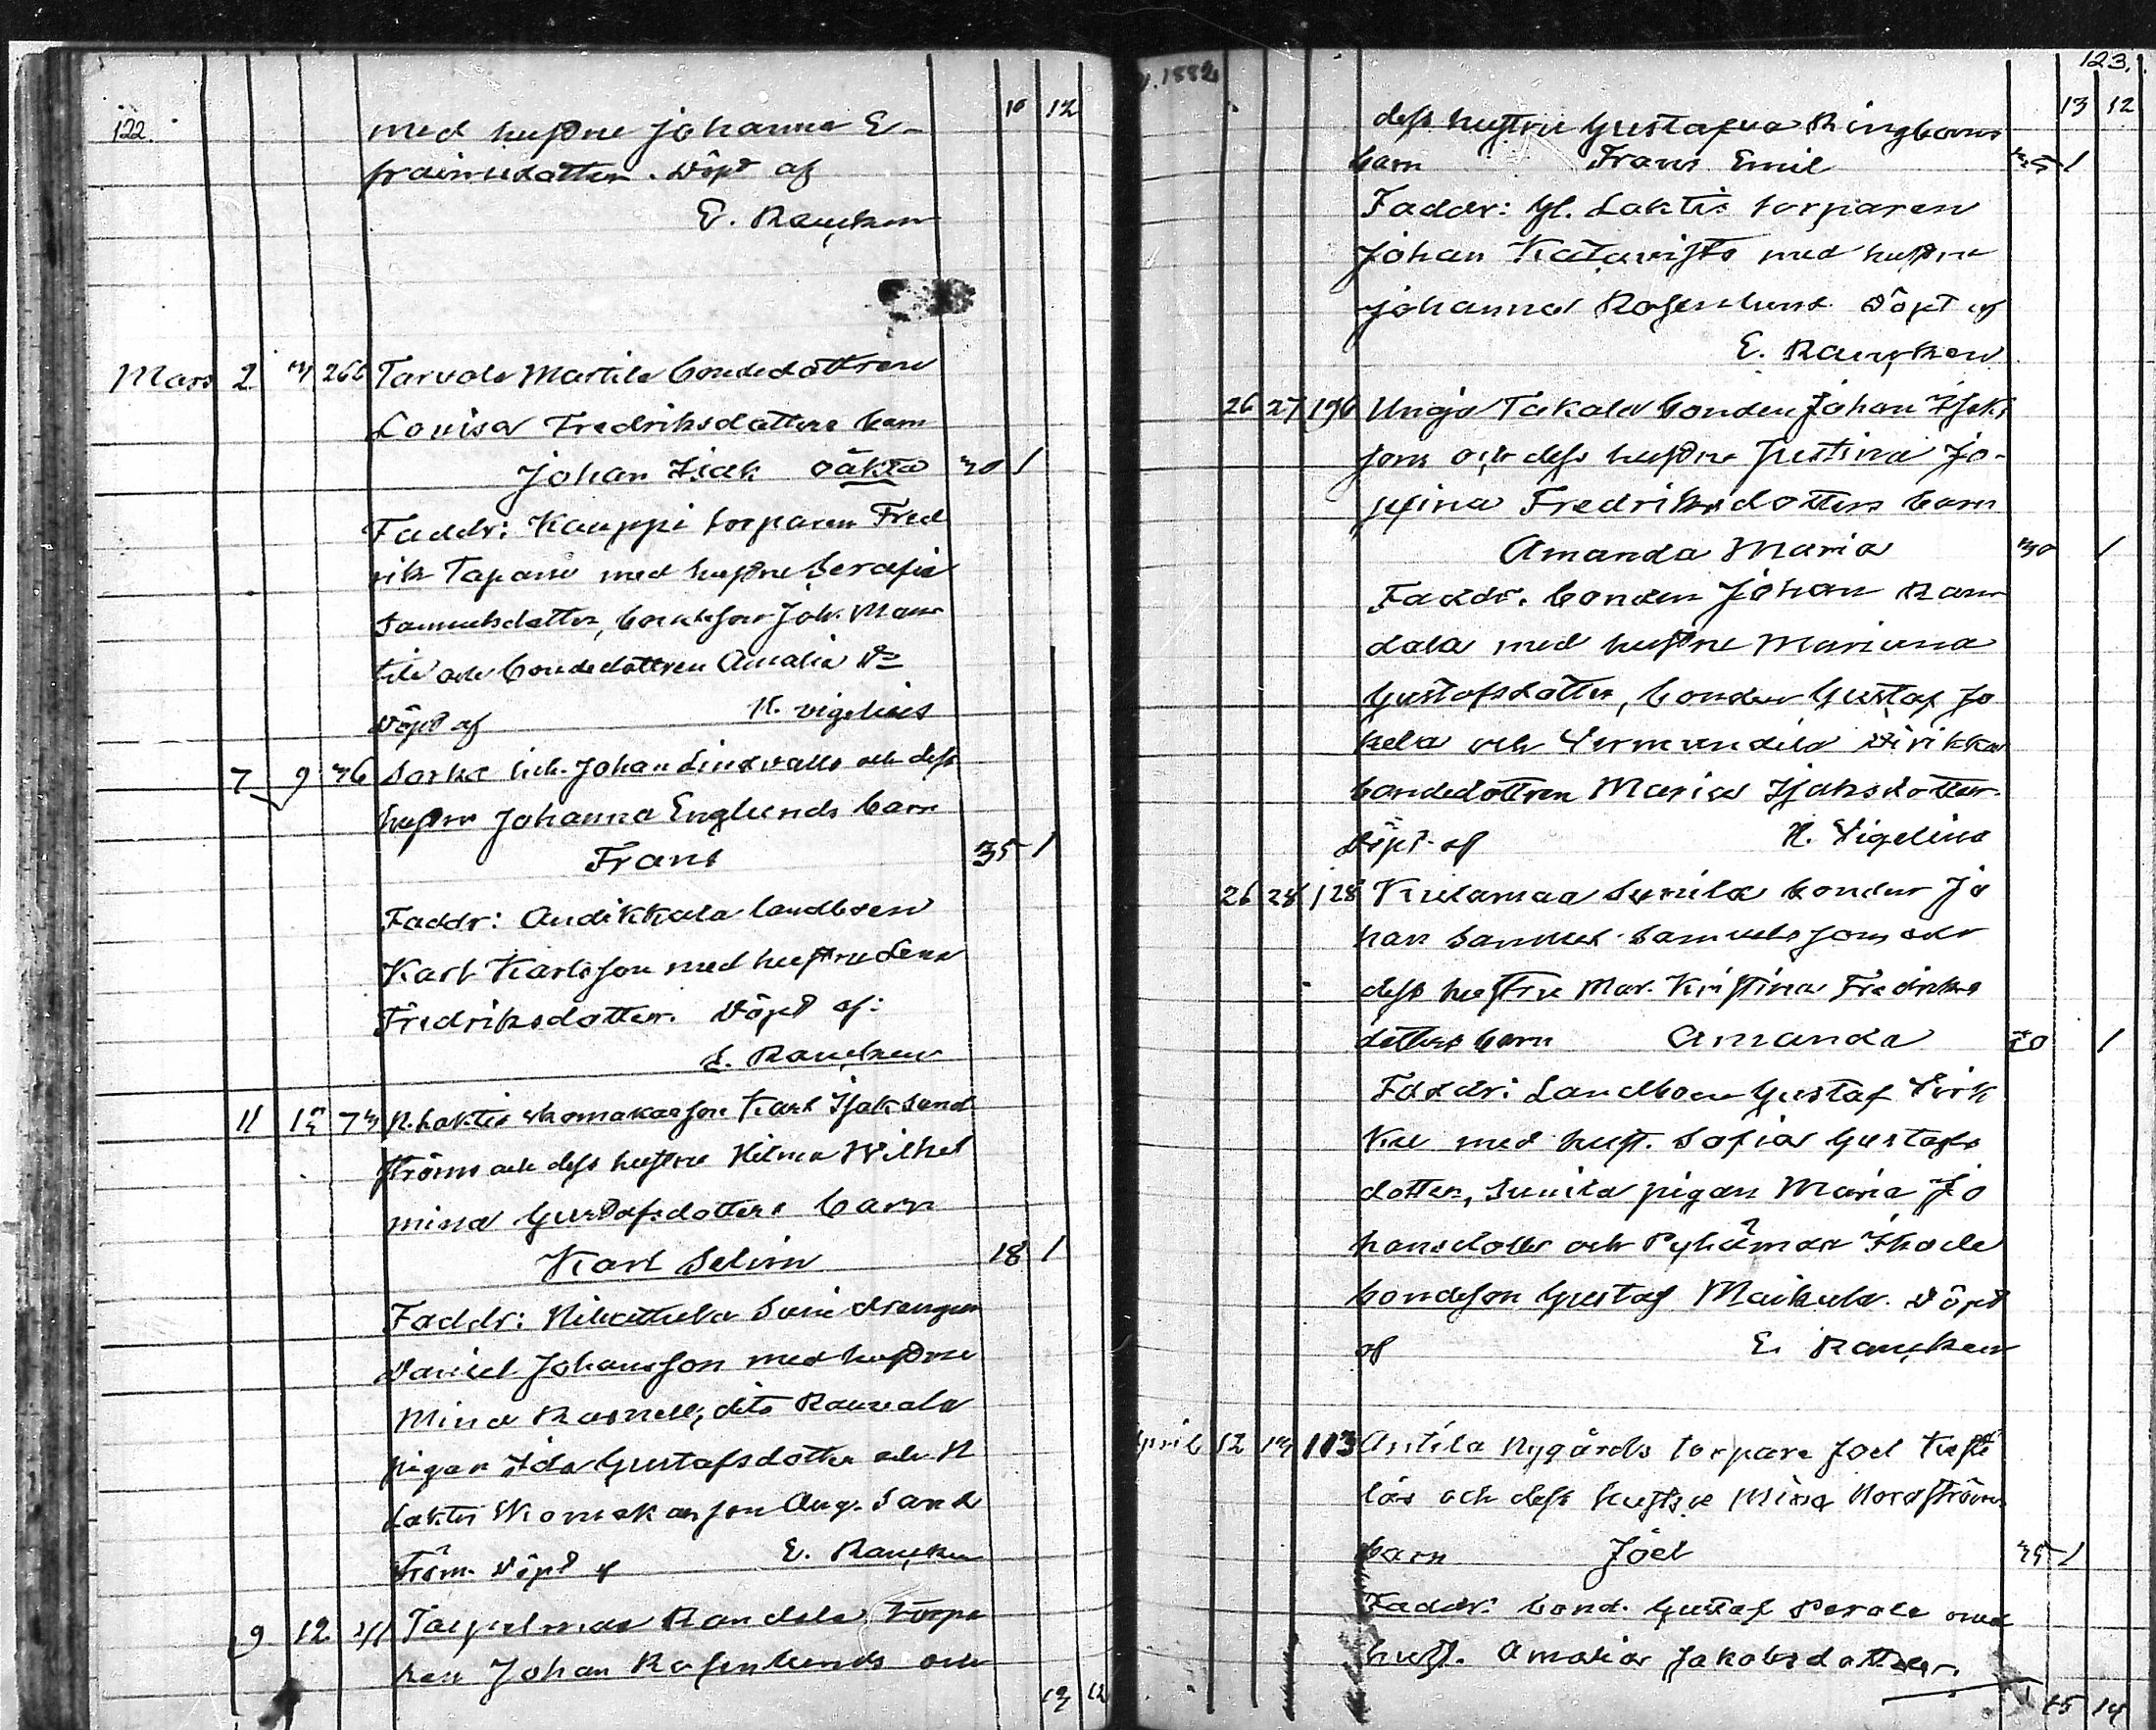 122.
10 12
med hustru Johanna E-
fraimsdotter. Döpt af
E. Rancken
Mars 2 3 266 Tarvola Martila bondedottren
Lovisa Fredriksdotters barn
Johan Isak oäkta 30 1
Faddr: Kauppi torparen Fred
rik Tapani med hustru Serafia
Samuelsdotter, bondeson Joh. Mar
tila och bondedottren Amalia Do
Döpt af H. Vigelius
7 9 36 Sorka inh. Johan Lindvalls och dess
hustru Johanna Englunds barn
Frans 35 1
Faddr: Andikkala landboen
Karl Karlsson med hustru Lena
Fredriksdotter. Döpt af:
E. Rancken
11 12 73 N. Laktis skomakareson Karl Isak Sand
ströms och dess hustru Hilma Wilhel
mina Gustafsdotters barn
Karl Selim 18 1
Faddr: Sari drengen
Daniel Johansson med hustru
Mina dito Raunala
pigan Ida Gustafsdotter och N
Laktis skomakareson Aug. Sand
ström. Döpt af E. Rancken
9 12 Randala torpa
ren Johan Rosenlunds och
13 12
1882
123.
13 12
dess hustru Gustafva Ringboms
barn Frans Emil 1
Faddr: Gl. Laktis torparen
Johan Katavisto med hustru
Johanna Rosenlund. Döpt af
E. Rancken
26 27 196 Unaja Takala bonden Johan Isaks
sons och dess hustru Justina Jo-
sefina Fredriksdotters barn
Amanda Maria 30 1
Faddr. bonden Johan Ran
dala med hustru Mariana
Gustafsdotter, bonden Gustaf Jo
kela och Vermundila Virikka
bondedottren Maria Isaksdotter.
Döpt af H. Vigelius
26 28 128 Kulamaa Sunila bonden Jo
han Samuel Samuelssons och
dess hustru Mar. Kristina Fredriks
dotters barn Amanda 20 1
Faddr: Landboen Gustaf Virk
ku med hust. Sofia Gustafs
dotter, Sunila pigan Maria Jo
hansdotter och Pyhämaa Ihode
bondeson Gustaf Maikula. Döpt
af E. Rancken
April 12 13 113 Antila Nygårds torpare Joel
och dess hustru Mina Nordströms
barn Joel 35 1
Faddr: bond. Gustaf Perole med
hust. Amalia Jakobsdotter.
15 14